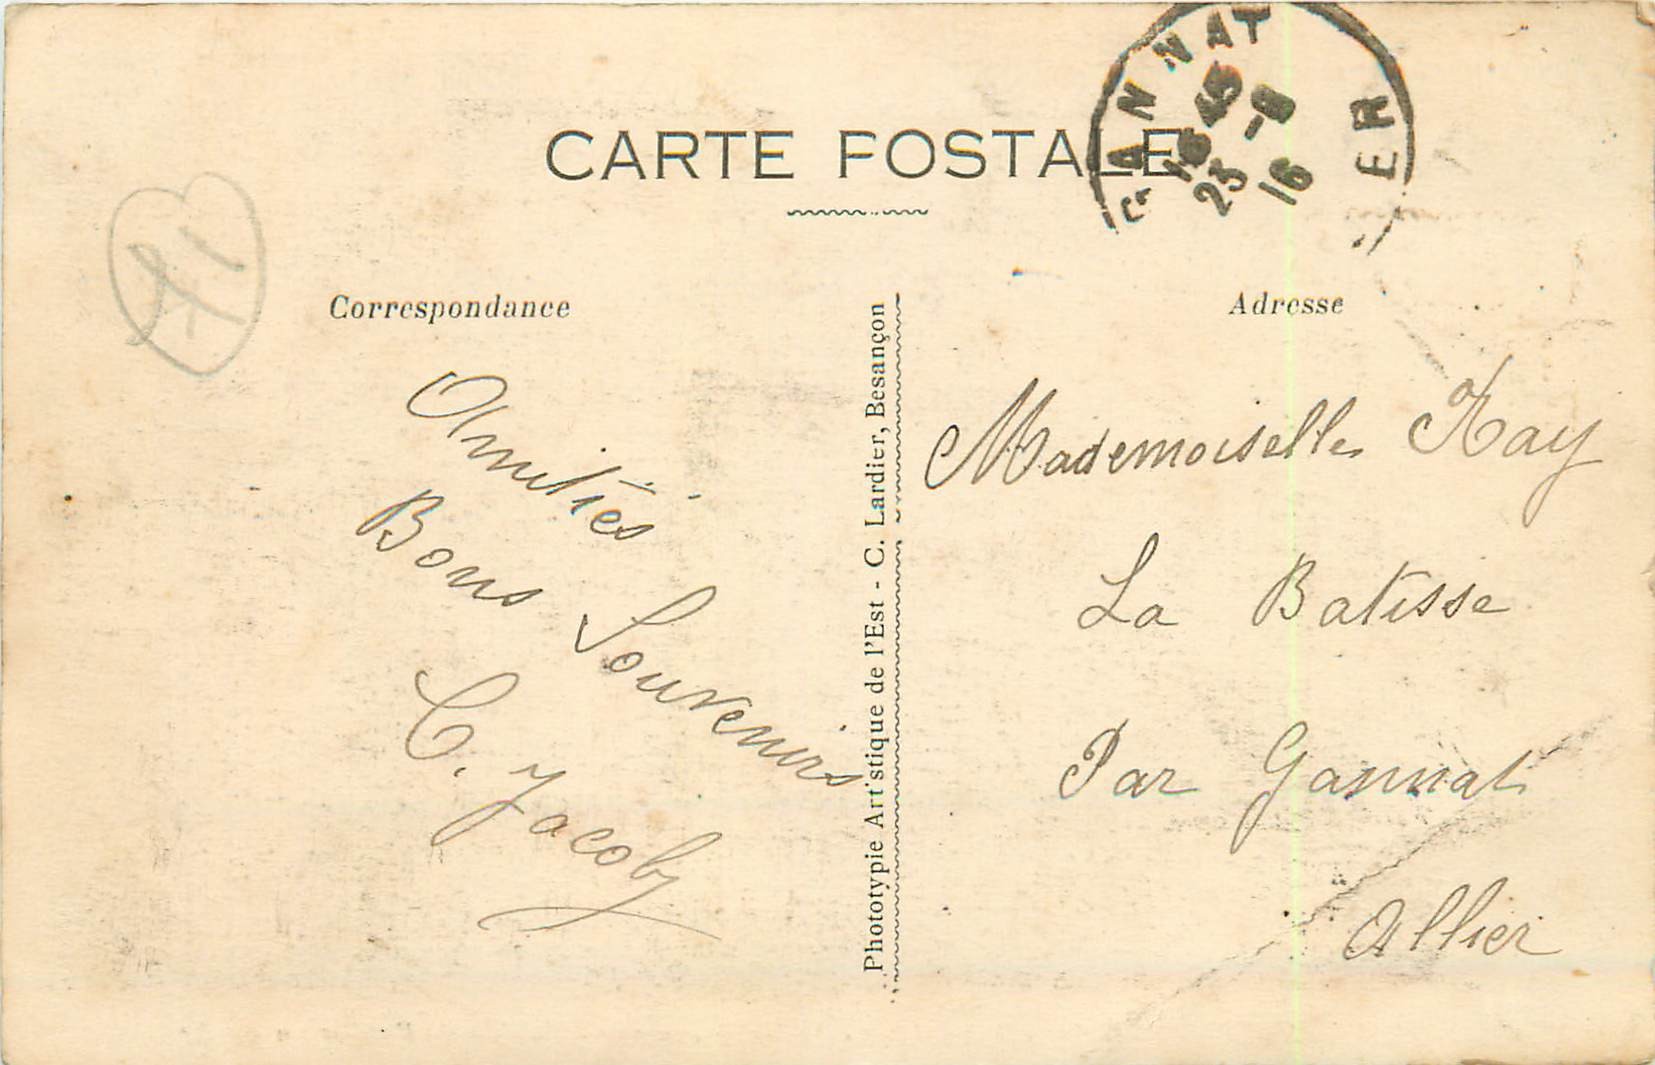 CARTE POSTALE
GANNAT
16 45
23 -8
16
ER
Correspondance
Adresse
Amitiés
Bons Souvenirs
C. Jacoby
Phototypie Artistique de l'Est - C. Lardier, Besançon
Mademoiselle Kay
La Batisse
Par Gannat
Allier